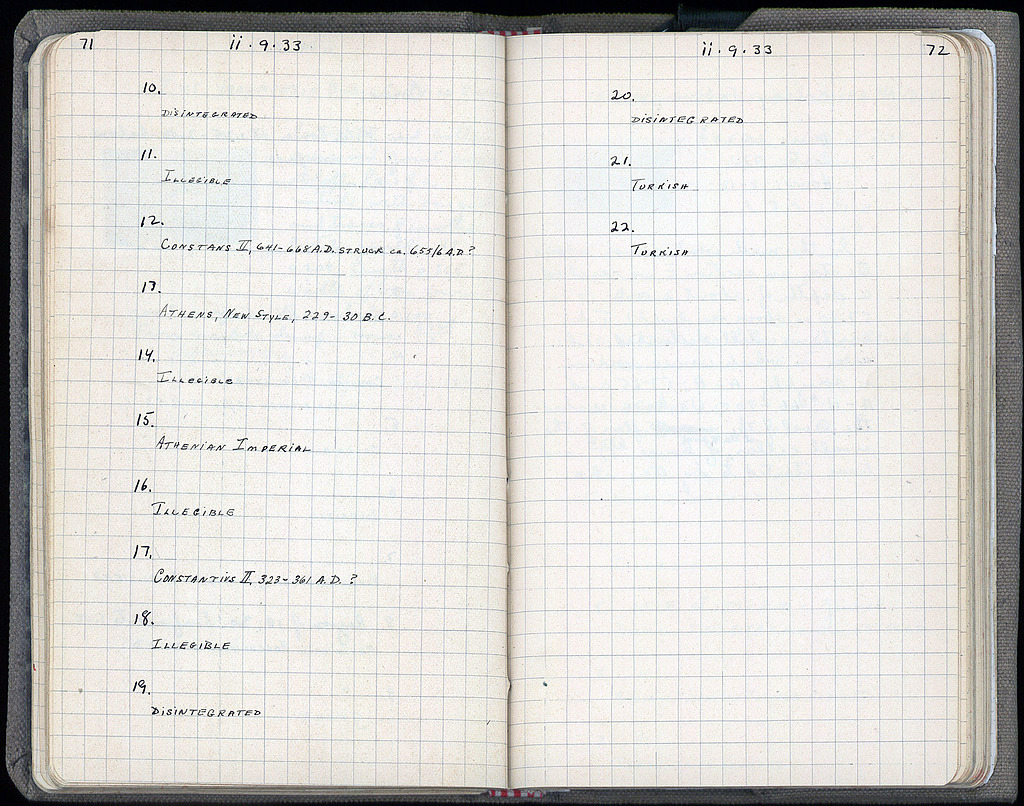 71
ii · 9 · 33
10.
DISINTEGRATED
11.
ILLEGIBLE
12.
CONSTANS II, 641-668 A.D. STRUCK ca. 655/6 A.D?
13.
ATHENS, NEW STYLE, 229-30 B.C.
14.
ILLEGIBLE
15.
ATHENIAN IMPERIAL
16.
ILLEGIBLE
17.
CONSTANTIUS II, 323-361 A.D. ?
18.
ILLEGIBLE
19.
DISINTEGRATED
ii · 9 · 33
72
20.
DISINTEGRATED
21.
TURKISH
22.
TURKISH